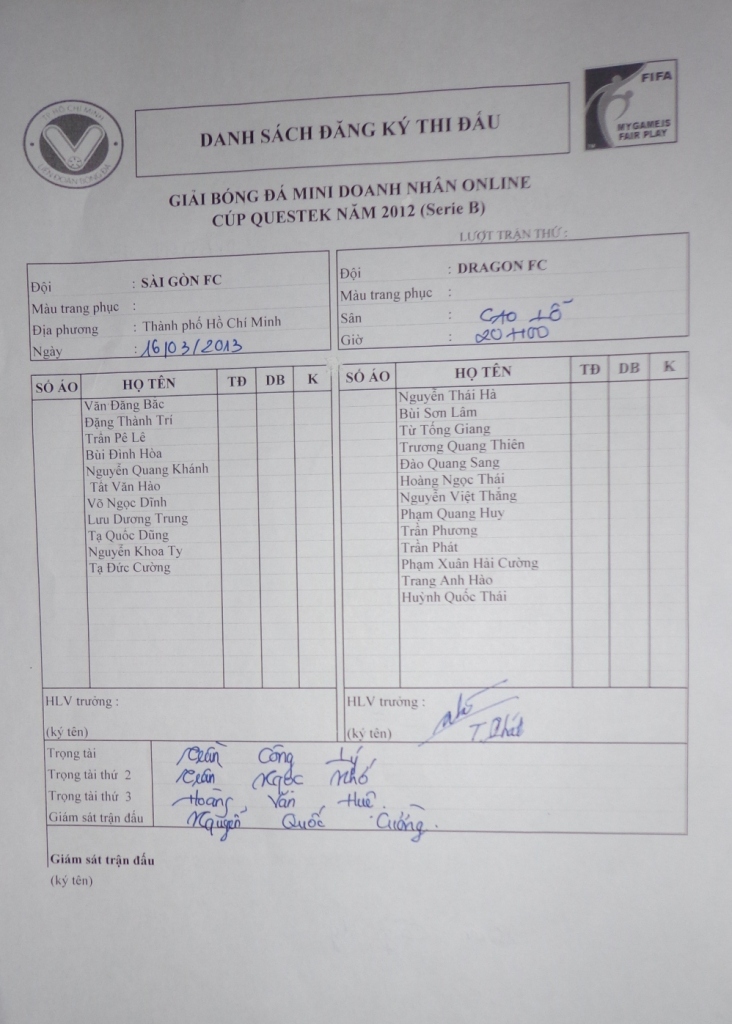 TP HỒ CHÍ MINH
LIÊN ĐOÀN BÓNG ĐÁ
DANH SÁCH ĐĂNG KÝ THI ĐẤU
FIFA
MY GAME IS
FAIR PLAY
GIẢI BÓNG ĐÁ MINI DOANH NHÂN ONLINE
CÚP QUESTEK NĂM 2012 (Serie B)
LƯỢT TRẬN THỨ :
Đội : SÀI GÒN FC
Màu trang phục :
Địa phương : Thành phố Hồ Chí Minh
Ngày : 16/03/2013
Đội : DRAGON FC
Màu trang phục :
Sân : CAO LỖ
Giờ : 20H00
SỐ ÁO HỌ TÊN TĐ DB K
Văn Đăng Bắc
Đặng Thành Trí
Trần Pê Lê
Bùi Đình Hòa
Nguyễn Quang Khánh
Tất Văn Hào
Võ Ngọc Dĩnh
Lưu Dương Trung
Tạ Quốc Dũng
Nguyễn Khoa Ty
Tạ Đức Cường
SỐ ÁO HỌ TÊN TĐ DB K
Nguyễn Thái Hà
Bùi Sơn Lâm
Từ Tống Giang
Trương Quang Thiên
Đào Quang Sang
Hoàng Ngọc Thái
Nguyễn Việt Thắng
Phạm Quang Huy
Trần Phương
Trần Phát
Phạm Xuân Hải Cường
Trang Anh Hào
Huỳnh Quốc Thái
HLV trưởng :
(ký tên)
HLV trưởng :
(ký tên) T. Phát
Trọng tài Trần Công Lý
Trọng tài thứ 2 Trần Ngọc Nhớ
Trọng tài thứ 3 Hoàng Văn Huê
Giám sát trận đấu Nguyễn Quốc Cường.
Giám sát trận đấu
(ký tên)